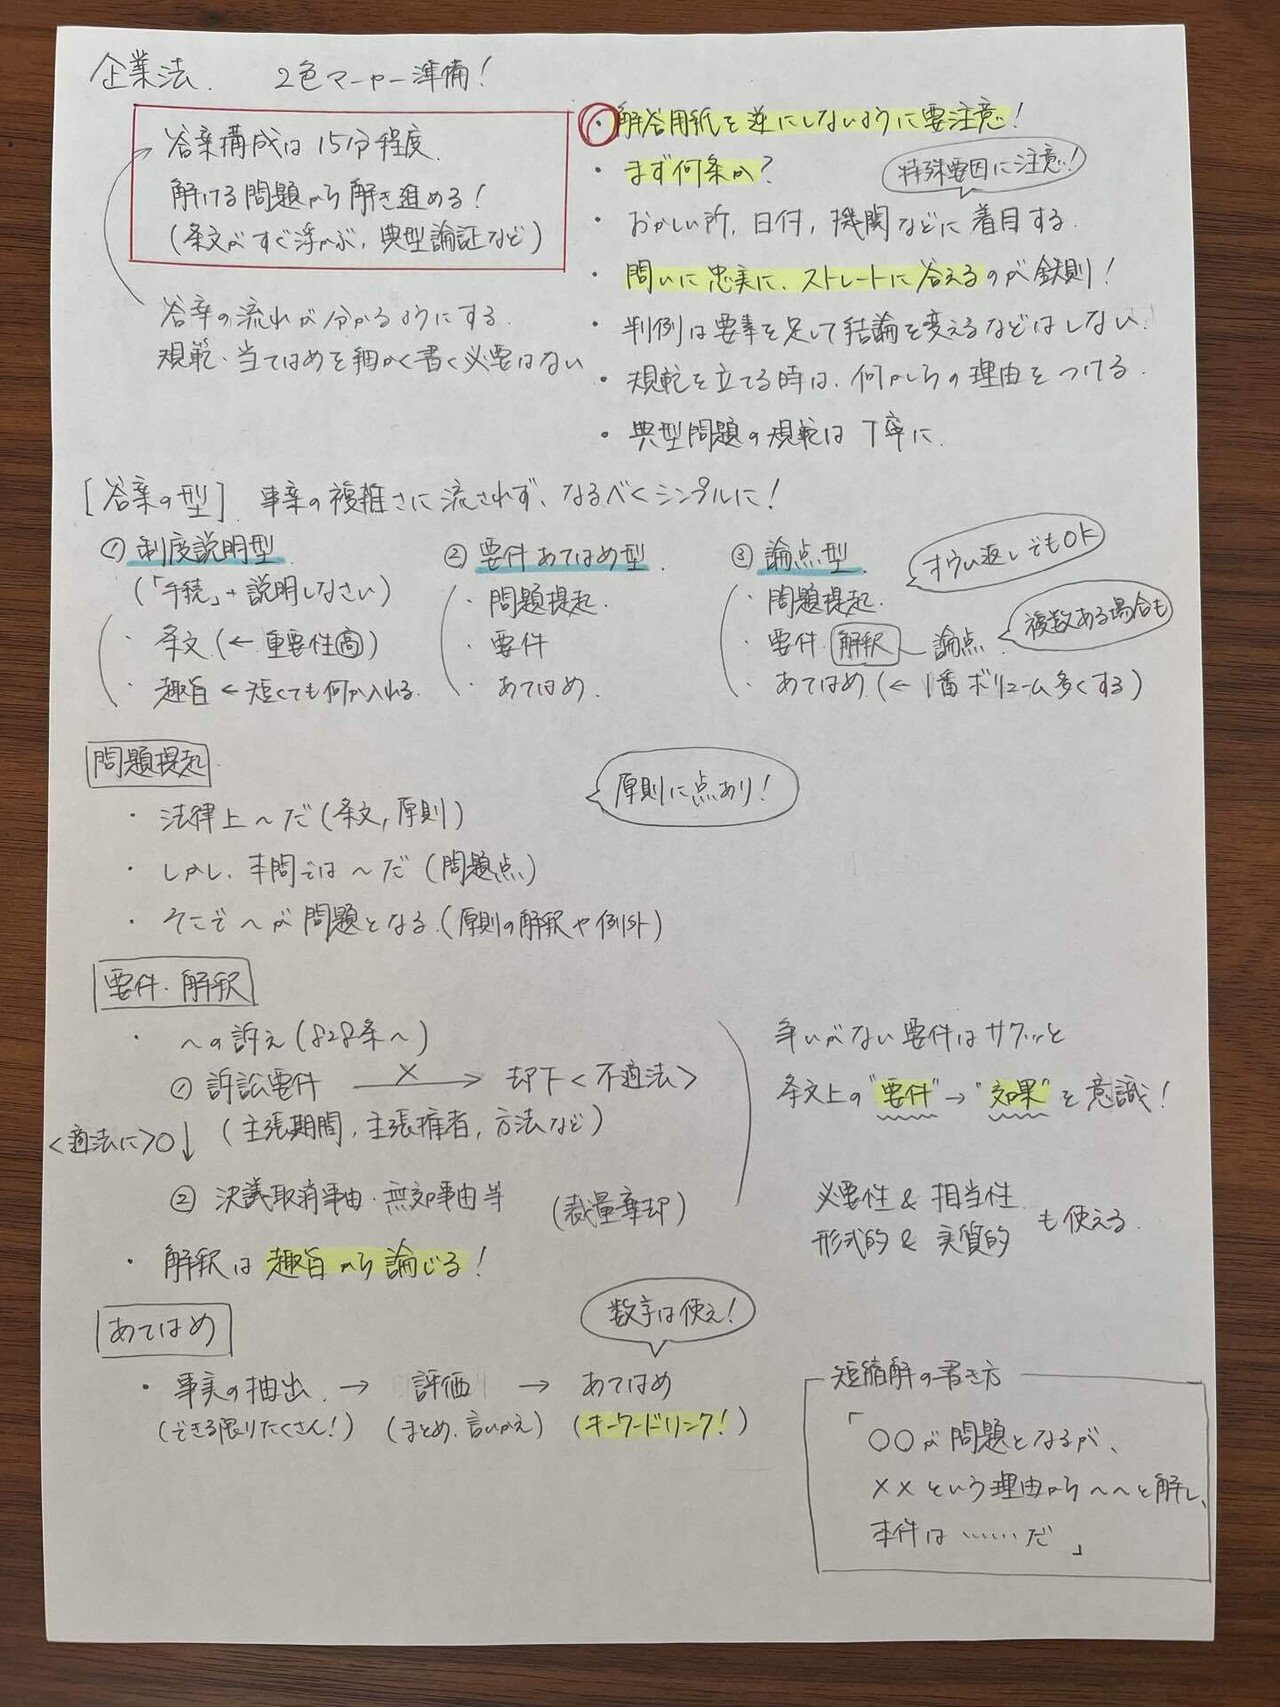 企業法. 2色マーカー準備!
答案構成は15分程度.
解ける問題から解き進める!
(条文がすぐ浮かぶ, 典型論証など)
答案の流れが分かるようにする.
規範・当てはめを細かく書く必要はない
・解答用紙を逆にしないように要注意!
・まず何条か?
特殊要因に注意!
・おかしい所, 日付, 機関などに着目する.
・問いに忠実に、ストレートに答えるのが鉄則!
・判例は要素を足して結論を変えるなどはしない.
・規範を立てる時は、何かしらの理由をつける.
・典型問題の規範は丁寧に.
[答案の型] 事案の複雑さに流されず、なるべくシンプルに!
① 制度説明型
(「手続」+説明しなさい)
・条文 (← 重要性高)
・趣旨 ← 短くても何か入れる.
② 要件あてはめ型.
・問題提起.
・要件
・あてはめ.
③ 論点型.
オウム返しでもOK
・問題提起.
・要件 解釈 論点.
複数ある場合も
・あてはめ (← 1番ボリューム多くする)
問題提起.
原則に点あり!
・法律上〜だ (条文, 原則)
・しかし、本問では〜だ (問題点)
・そこで〜が問題となる. (原則の解釈や例外)
要件・解釈
・〜の訴え (828条〜)
① 訴訟要件 × → 却下<不適法>
(主張期間, 主張権者, 方法など)
<適法に>○↓
② 決議取消事由・無効事由等 (裁量棄却)
・解釈は趣旨から論じる!
争いがない要件はサクッと
条文上の"要件"→"効果"を意識!
必要性 & 相当性
形式的 & 実質的
も使える.
あてはめ
数字は使え!
・事実の抽出. → 評価 → あてはめ
(できる限りたくさん!) (まとめ, 言いかえ) (キーワードリンク!)
短縮解の書き方
「○○が問題となるが、
××という理由から〜〜と解し、
本件は……だ」